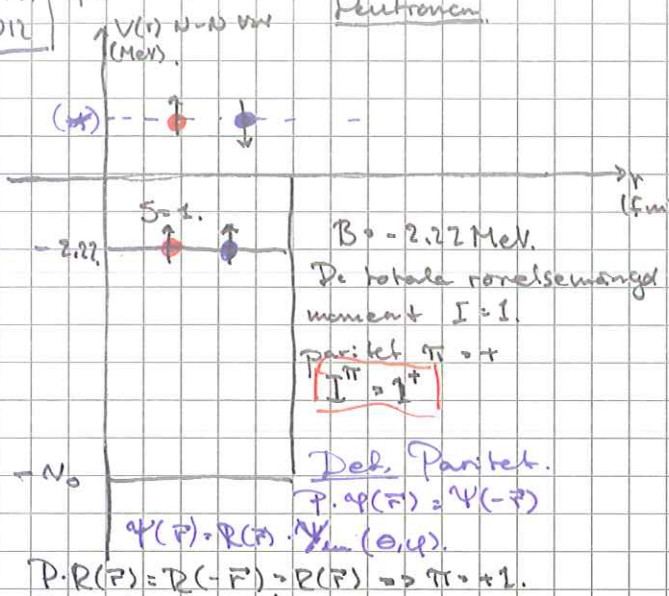 012
Neutronen.
V(r) N-N vxv
(MeV).
(*)
r
(fm
S=1.
-2,22
B = -2,22 MeV.
De totala rörelsemängd
moment I = 1.
paritet π = +
I^π = 1^+
-V₀
Def. Paritet.
P·ψ(r̄) = ψ(-r̄)
ψ(r̄) = R(r̄)·Yₗₘ(θ,φ).
P·R(r̄) = R(-r̄) = R(r̄) => π = +1.